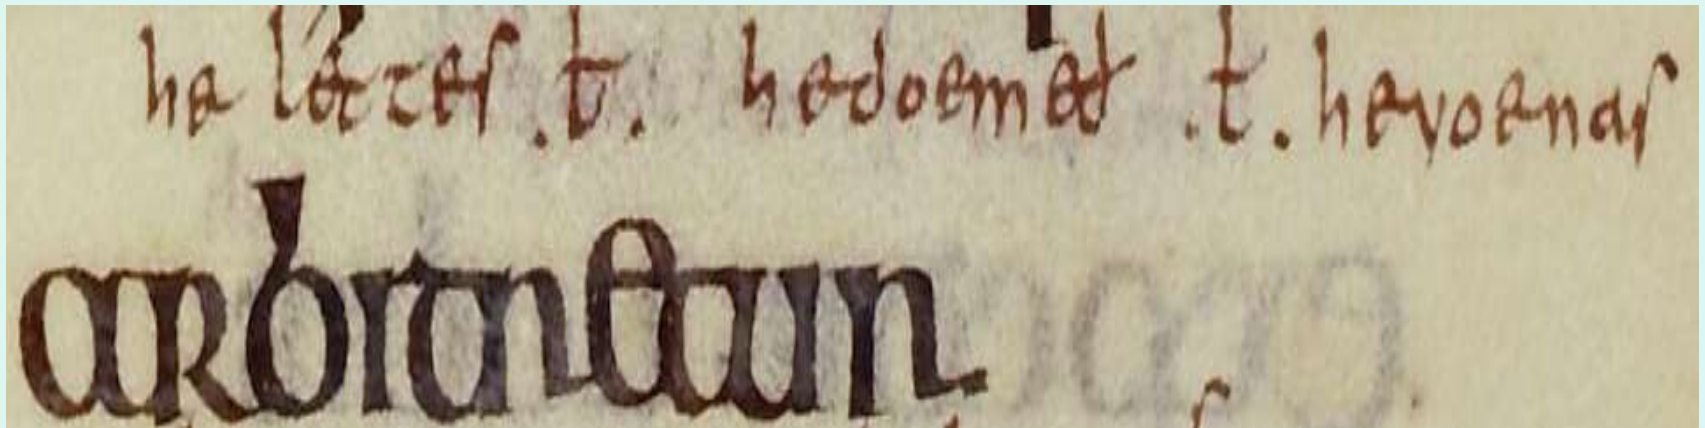 he lettes .ł. hedoemeð .ł. heƿoenas
arbitretur